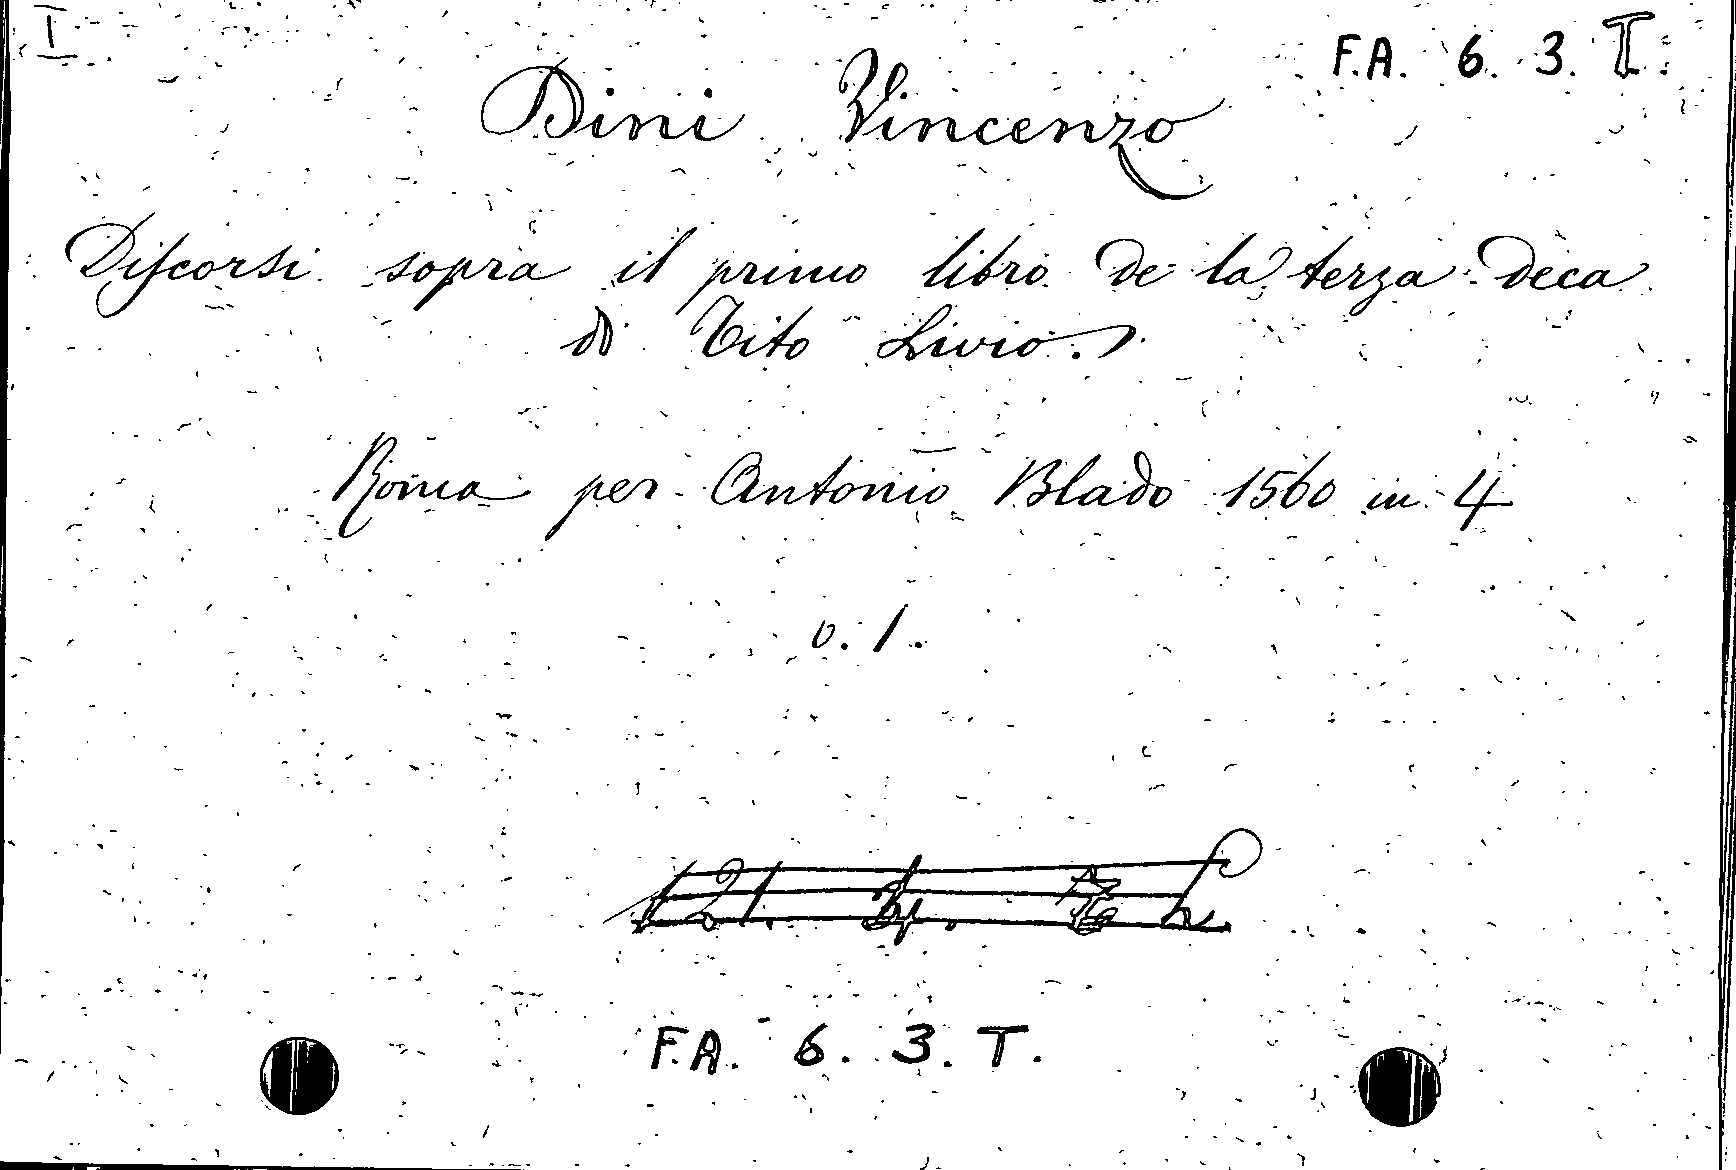 I
F.A. 6. 3. T.
Dini Vincenzo
Discorsi sopra il primo libro de la terza deca
di Tito Livio.
Roma per Antonio Blado 1560 in 4
v. 1.
F.A. 6. 3. T.